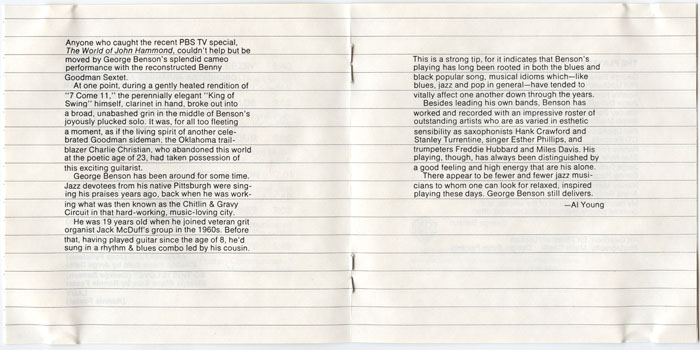 Anyone who caught the recent PBS TV special,
The World of John Hammond, couldn't help but be
moved by George Benson's splendid cameo
performance with the reconstructed Benny
Goodman Sextet.
At one point, during a gently heated rendition of
"7 Come 11," the perennially elegant "King of
Swing" himself, clarinet in hand, broke out into
a broad, unabashed grin in the middle of Benson's
joyously plucked solo. It was, for all too fleeting
a moment, as if the living spirit of another cele-
brated Goodman sideman, the Oklahoma trail-
blazer Charlie Christian, who abandoned this world
at the poetic age of 23, had taken possession of
this exciting guitarist.
George Benson has been around for some time.
Jazz devotees from his native Pittsburgh were sing-
ing his praises years ago, back when he was work-
ing what was then known as the Chitlin & Gravy
Circuit in that hard-working, music-loving city.
He was 19 years old when he joined veteran grit
organist Jack McDuff's group in the 1960s. Before
that, having played guitar since the age of 8, he'd
sung in a rhythm & blues combo led by his cousin.
This is a strong tip, for it indicates that Benson's
playing has long been rooted in both the blues and
black popular song, musical idioms which—like
blues, jazz and pop in general—have tended to
vitally affect one another down through the years.
Besides leading his own bands, Benson has
worked and recorded with an impressive roster of
outstanding artists who are as varied in esthetic
sensibility as saxophonists Hank Crawford and
Stanley Turrentine, singer Esther Phillips, and
trumpeters Freddie Hubbard and Miles Davis. His
playing, though, has always been distinguished by
a good feeling and high energy that are his alone.
There appear to be fewer and fewer jazz musi-
cians to whom one can look for relaxed, inspired
playing these days. George Benson still delivers.
—Al Young